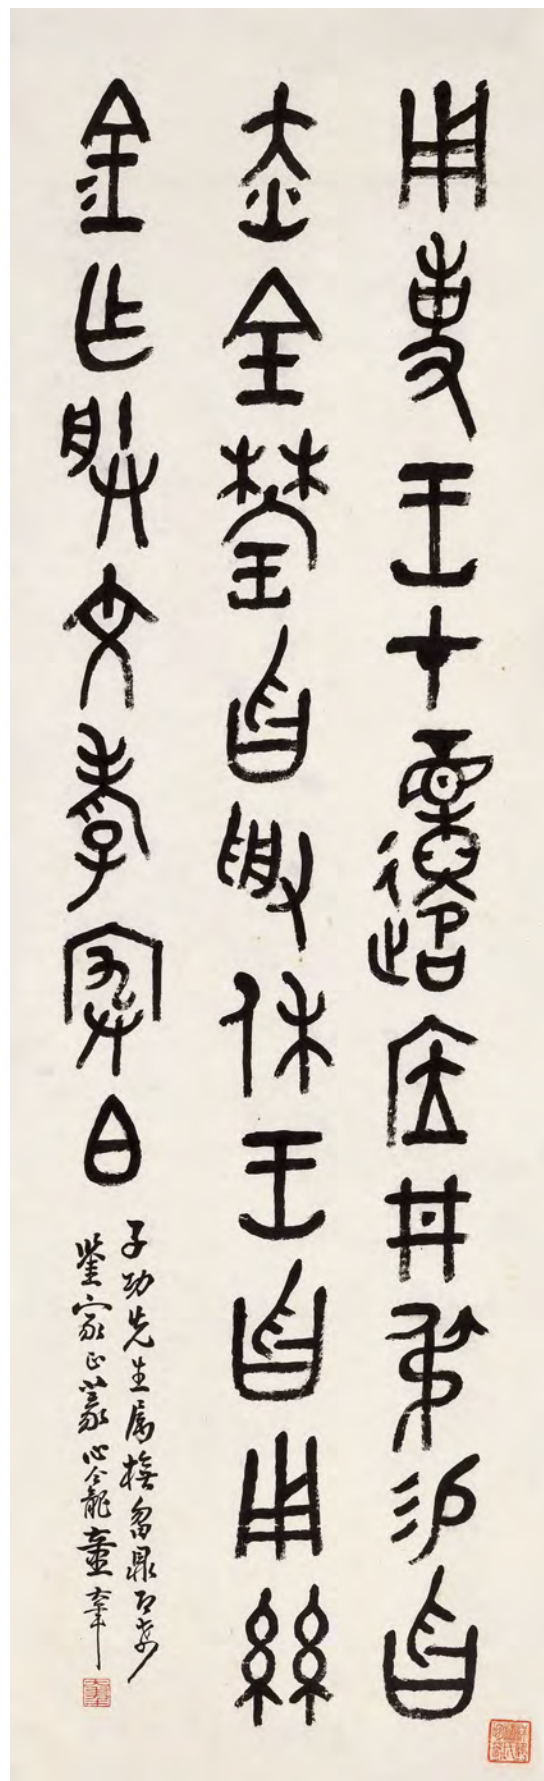 用事王才應井叔易曶
赤金曶受休王曶用絲
金乍朕文孝弃白
子功先生屬橅曶鼎即希
鑒家正篆 心龕童大年